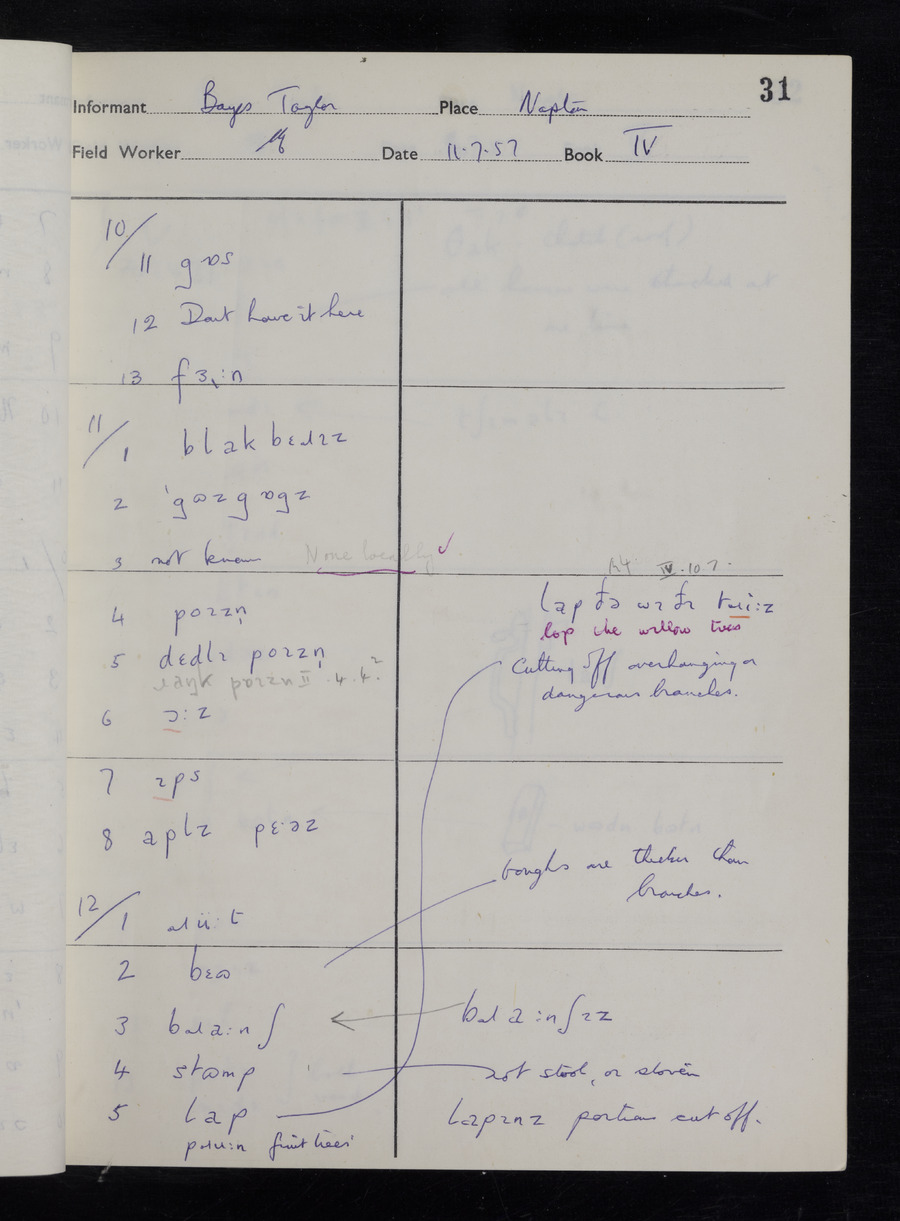 31
Informant Bayes Taylor Place Napton
Field Worker Date 11.7.57 Book IV
10/
11 gɒs
12 Dont have it here
13 fɜ˞:n
11/
1 blakbɛɹɪz
2 'gɷzgɒgz
3 not known None locally ✓
4 pɔɪzn̩
5 dɛdlɪ pɔɪzn̩
ɹaŋk pɔɪzn II.4.4.²
6 ɔ:z
7 ɪps
8 aplz pɛ·əz
12/
1 ɹüü:t
2 bɛɷ
3 bɹa:nʃ
4 stɷmp
5 lap
pɹu:n fruit trees
IV.10.7.
lap ðə wɪðɪ tɹi:z
lop the willow trees
Cutting off overhanging or
dangerous branches.
boughs are thicker than
branches.
bɹa:nʃɪz
not stool, or sloven
lapɪnz portions cut off.